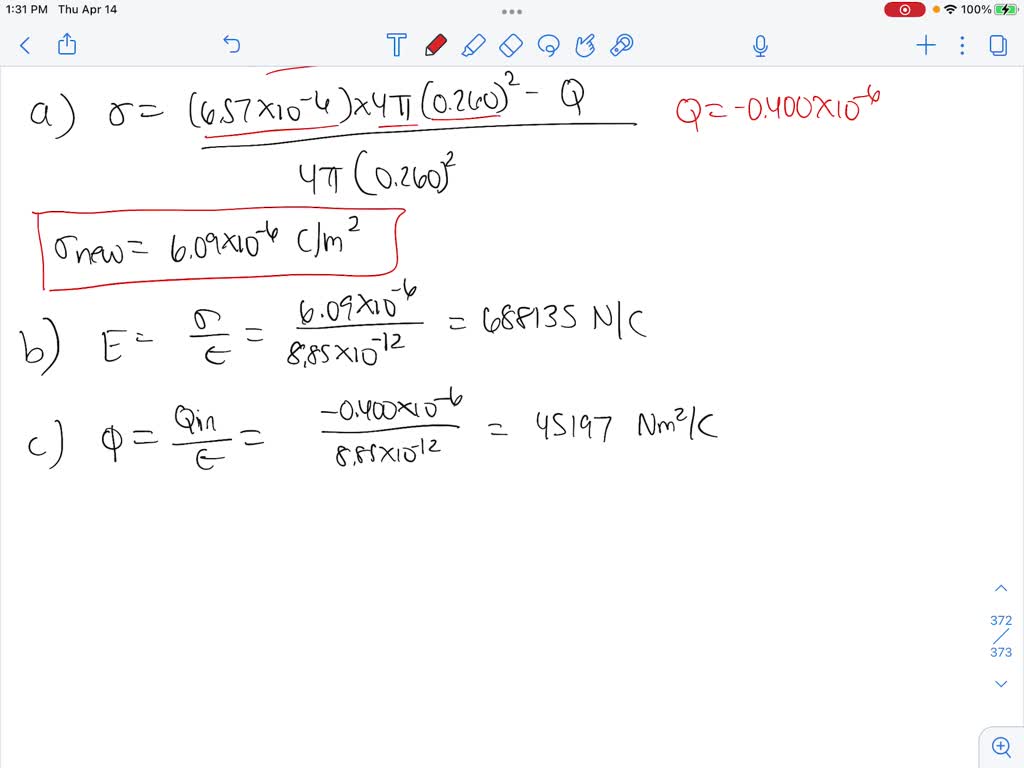 1:31 PM Thu Apr 14
100%
a) σ = (6.57×10⁻⁶)×4π(0.260)² - Q
4π(0.260)²
Q = -0.400×10⁻⁶
σnew = 6.09×10⁻⁶ C/m²
b) E = σ/ε = 6.09×10⁻⁶/8.85×10⁻¹² = 688135 N/C
c) Φ = Qin/ε = -0.400×10⁻⁶/8.85×10⁻¹² = 45197 Nm²/C
372
373